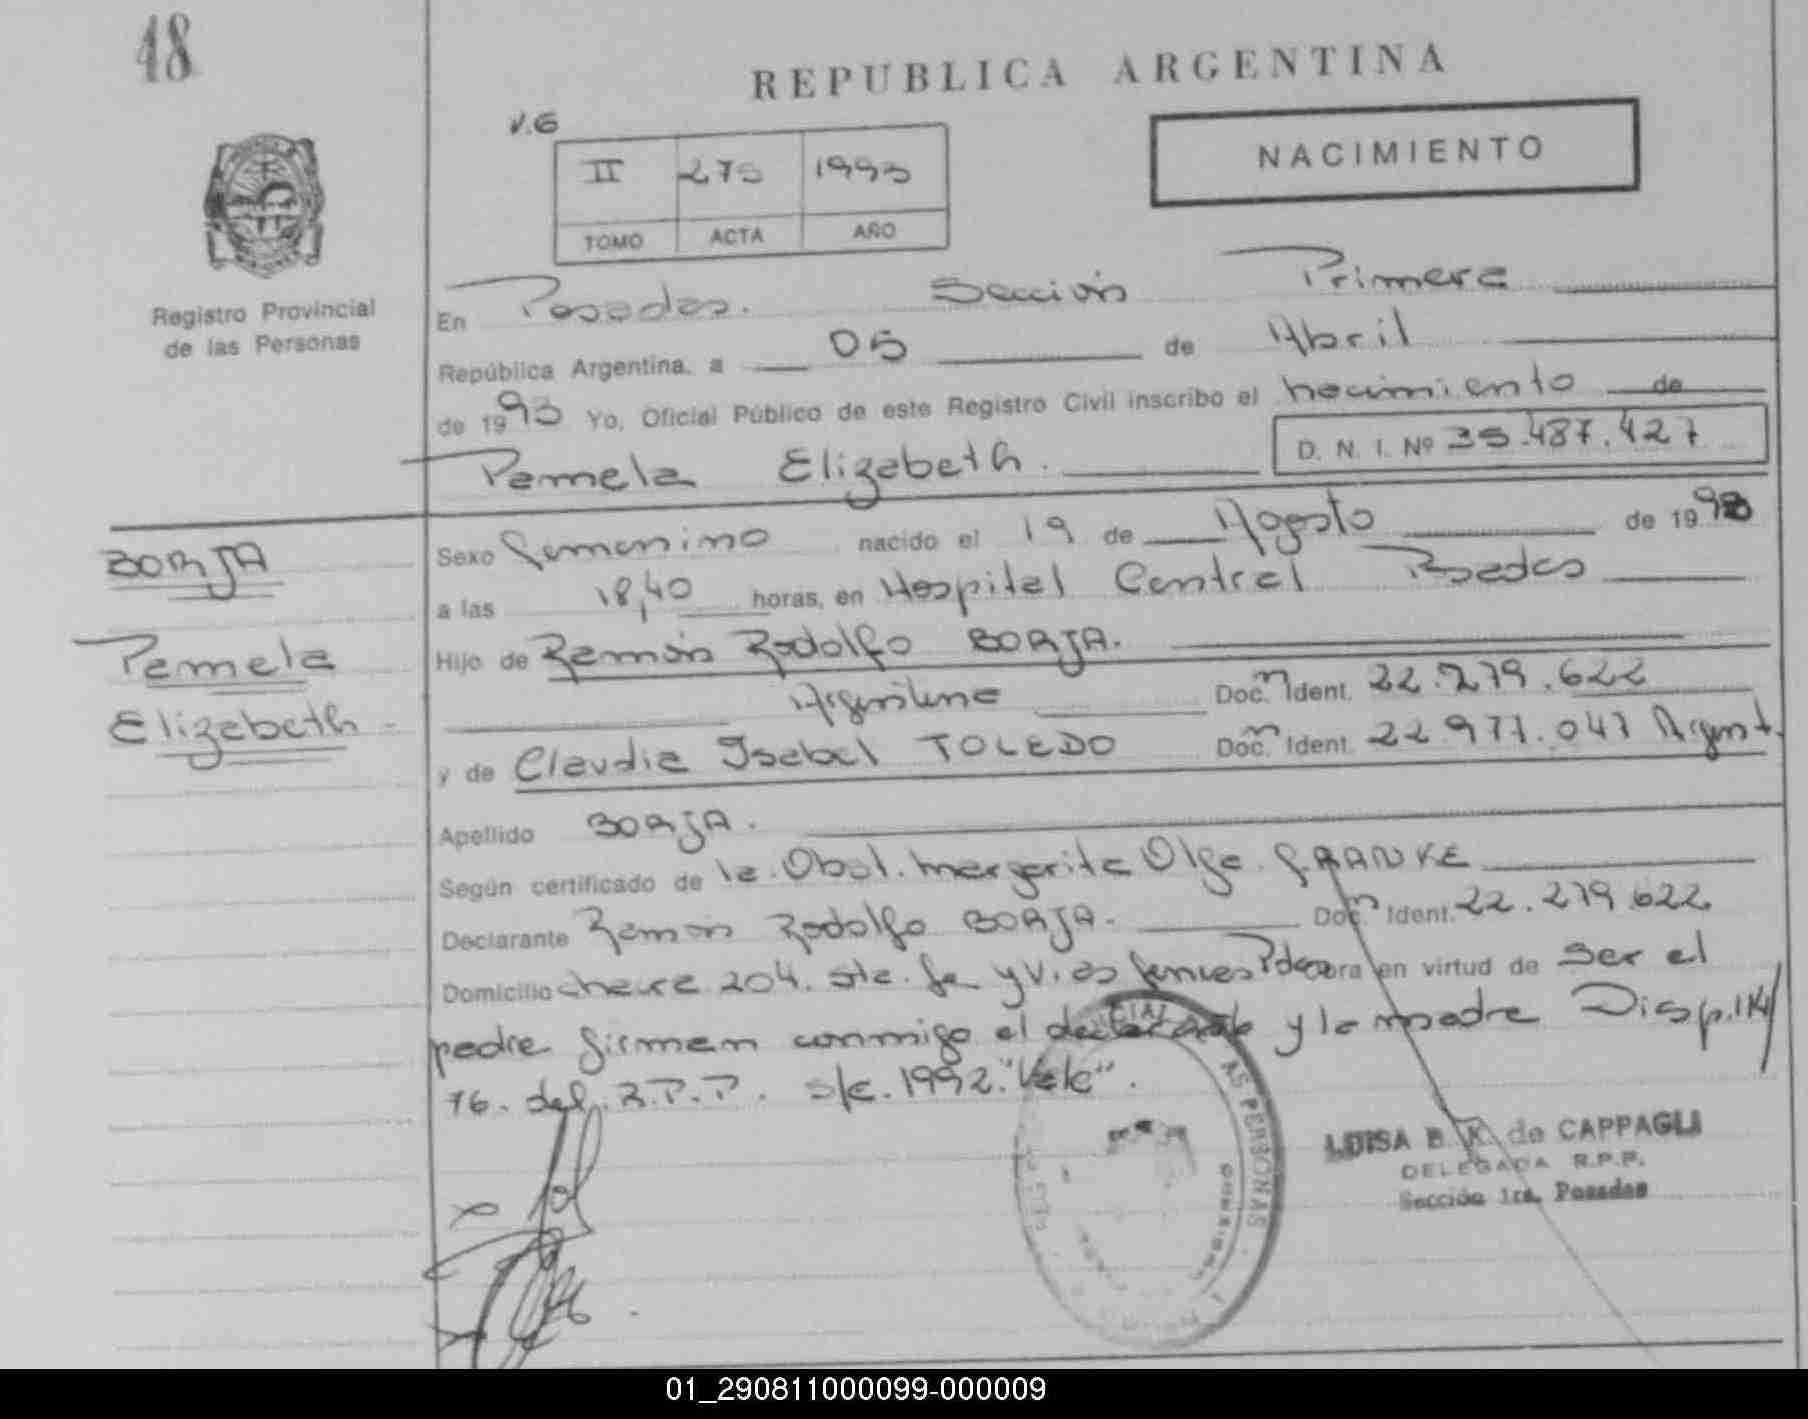 48
REPUBLICA ARGENTINA
V.G
NACIMIENTO
II 275 1993
TOMO ACTA AÑO
Registro Provincial
de las Personas
En Posadas. Sección Primera
República Argentina, a 05 de Abril
de 1993 Yo, Oficial Público de este Registro Civil inscribo el nacimiento de
Pamela Elizabeth. D. N. I. Nº 35.487.427
BORJA
Pamela
Elizabeth
Sexo femenino nacido el 19 de Agosto de 199
a las 18,40 horas, en Hospital Central Posadas
Hijo de Ramón Rodolfo BORJA.
Argentina Doc. n Ident. 22.279.622
y de Claudia Isabel TOLEDO Doc. n Ident. 22.977.047 Argent.
Apellido BORJA.
Según certificado de la Obst. Margarita Olga
Declarante Ramón Rodolfo BORJA. Doc. n Ident. 22.279.622
Domicilio 204. Sta. Fe y V. Pdas obra en virtud de ser el
padre firman conmigo el declarante y la madre Disp. 14/
76. del R.P.P. s/c. 1992. "Vale".
AS PERSONAS
LUISA B. K. de CAPPAGLI
DELEGADA R.P.P.
Sección 1ra. Posadas
01_290811000099-000009